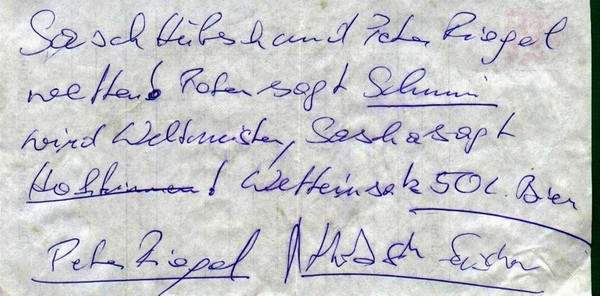 Sasch Hübsch und Peter Riegel
wetten! Peter sagt Schumi
wird Weltmeister, Sascha sagt
! Wetteinsatz 50 L. Bier
Peter Riegel